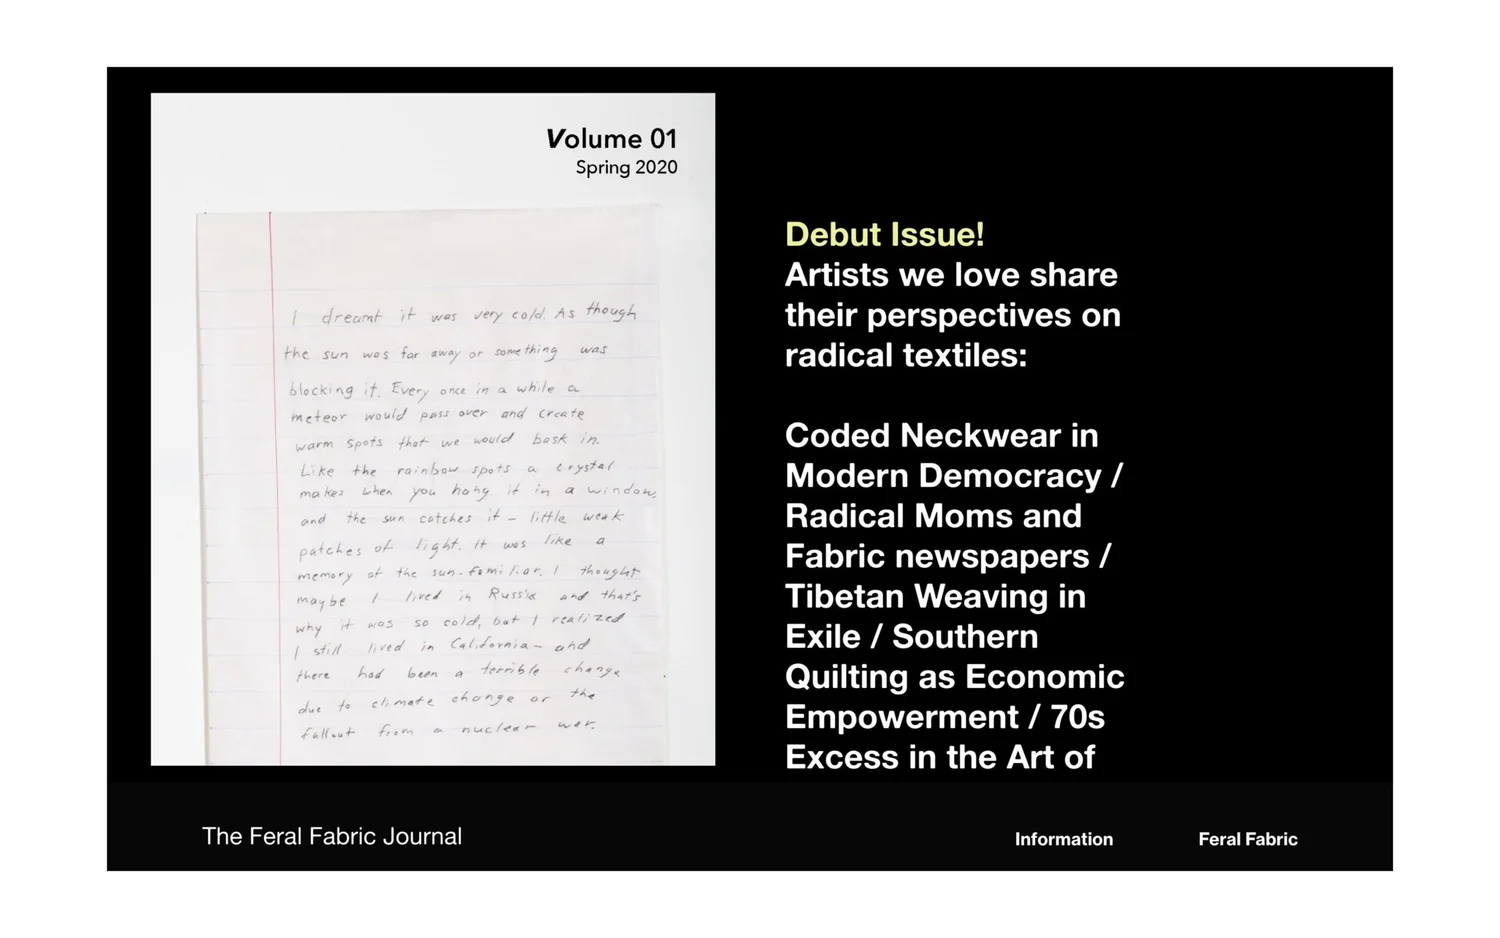 Volume 01
Spring 2020
I dreamt it was very cold. As though
the sun was far away or something was
blocking it. Every once in a while a
meteor would pass over and create
warm spots that we would bask in.
Like the rainbow spots a crystal
makes when you hang it in a window,
and the sun catches it – little weak
patches of light. It was like a
memory of the sun-familiar. I thought
maybe I lived in Russia and that's
why it was so cold, but I realized
I still lived in California – and
there had been a terrible change
due to climate change or the
fallout from a nuclear war.
Debut Issue!
Artists we love share
their perspectives on
radical textiles:
Coded Neckwear in
Modern Democracy /
Radical Moms and
Fabric newspapers /
Tibetan Weaving in
Exile / Southern
Quilting as Economic
Empowerment / 70s
Excess in the Art of
The Feral Fabric Journal
Information
Feral Fabric